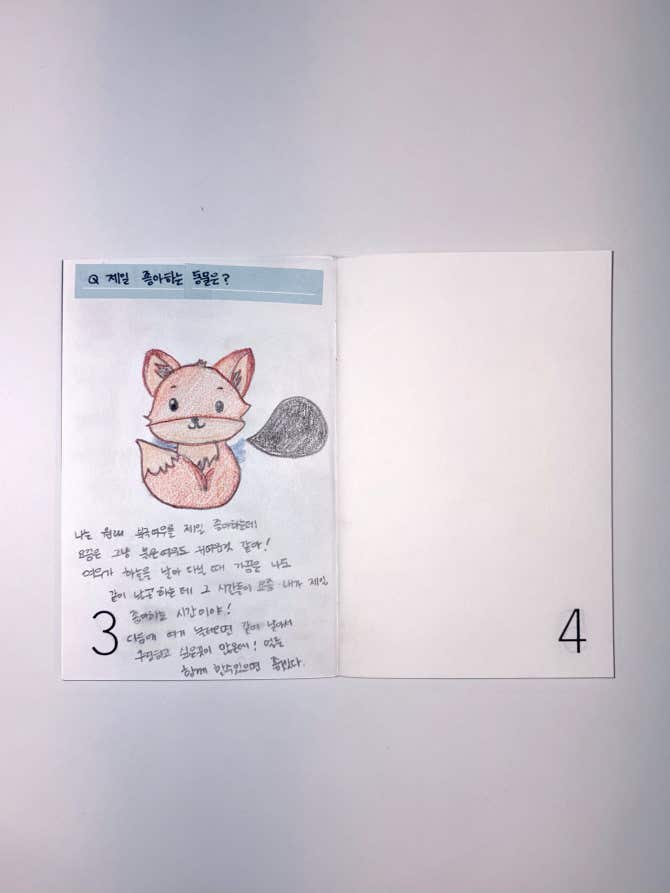 Q 제일 좋아하는 동물은?
나는 원래 북극여우를 제일 좋아하는데
요즘은 그냥 붉은여우도 귀여운것 같아!
여우가 하늘을 날아 다닐 때 가끔은 나도
같이 날곤 하는데 그 시간들이 요즘 내가 제일
좋아하는 시간이야!
다음에 여기 같이 날아서
싶은곳이 많은데!
함께 할수있으면 좋겠다.
3
4